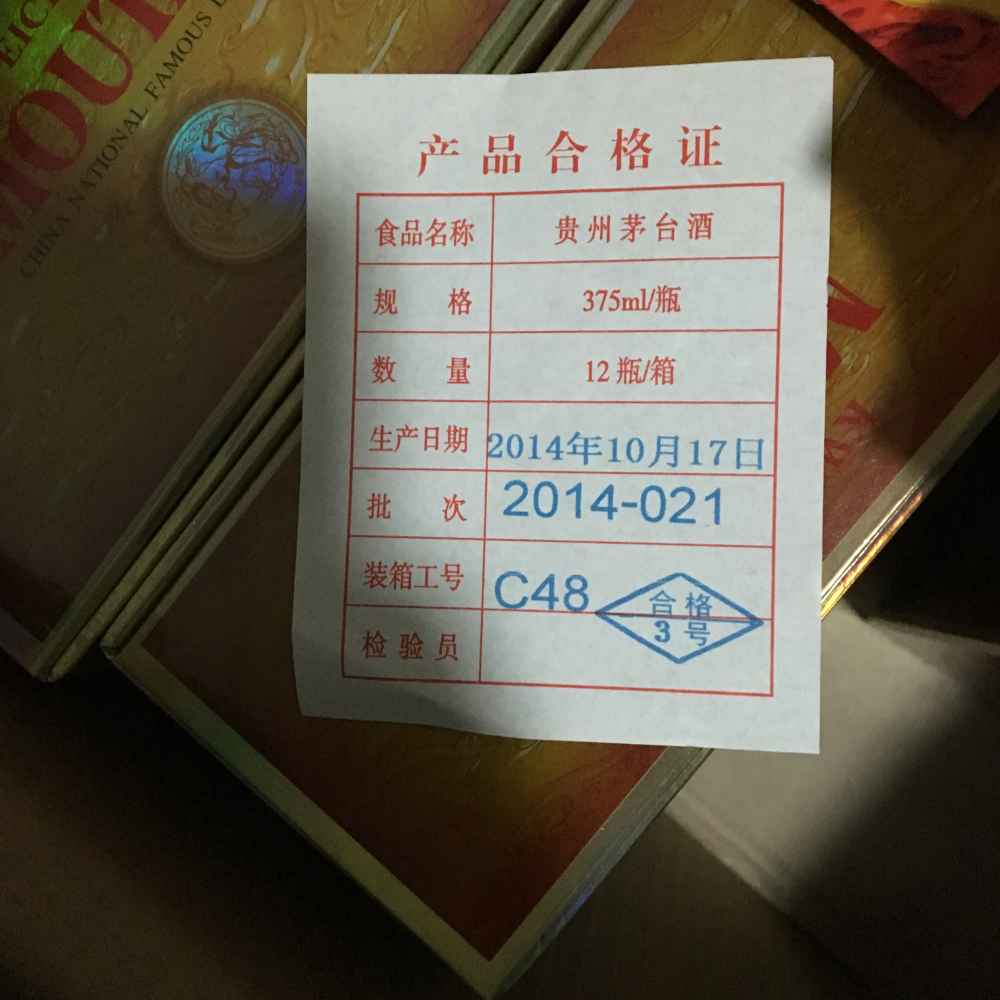 MOUT
CHINA NATIONAL FAMOUS
产品合格证
食品名称 贵州茅台酒
规格 375ml/瓶
数量 12瓶/箱
生产日期 2014年10月17日
批次 2014-021
装箱工号 C48
检验员 合格
3号